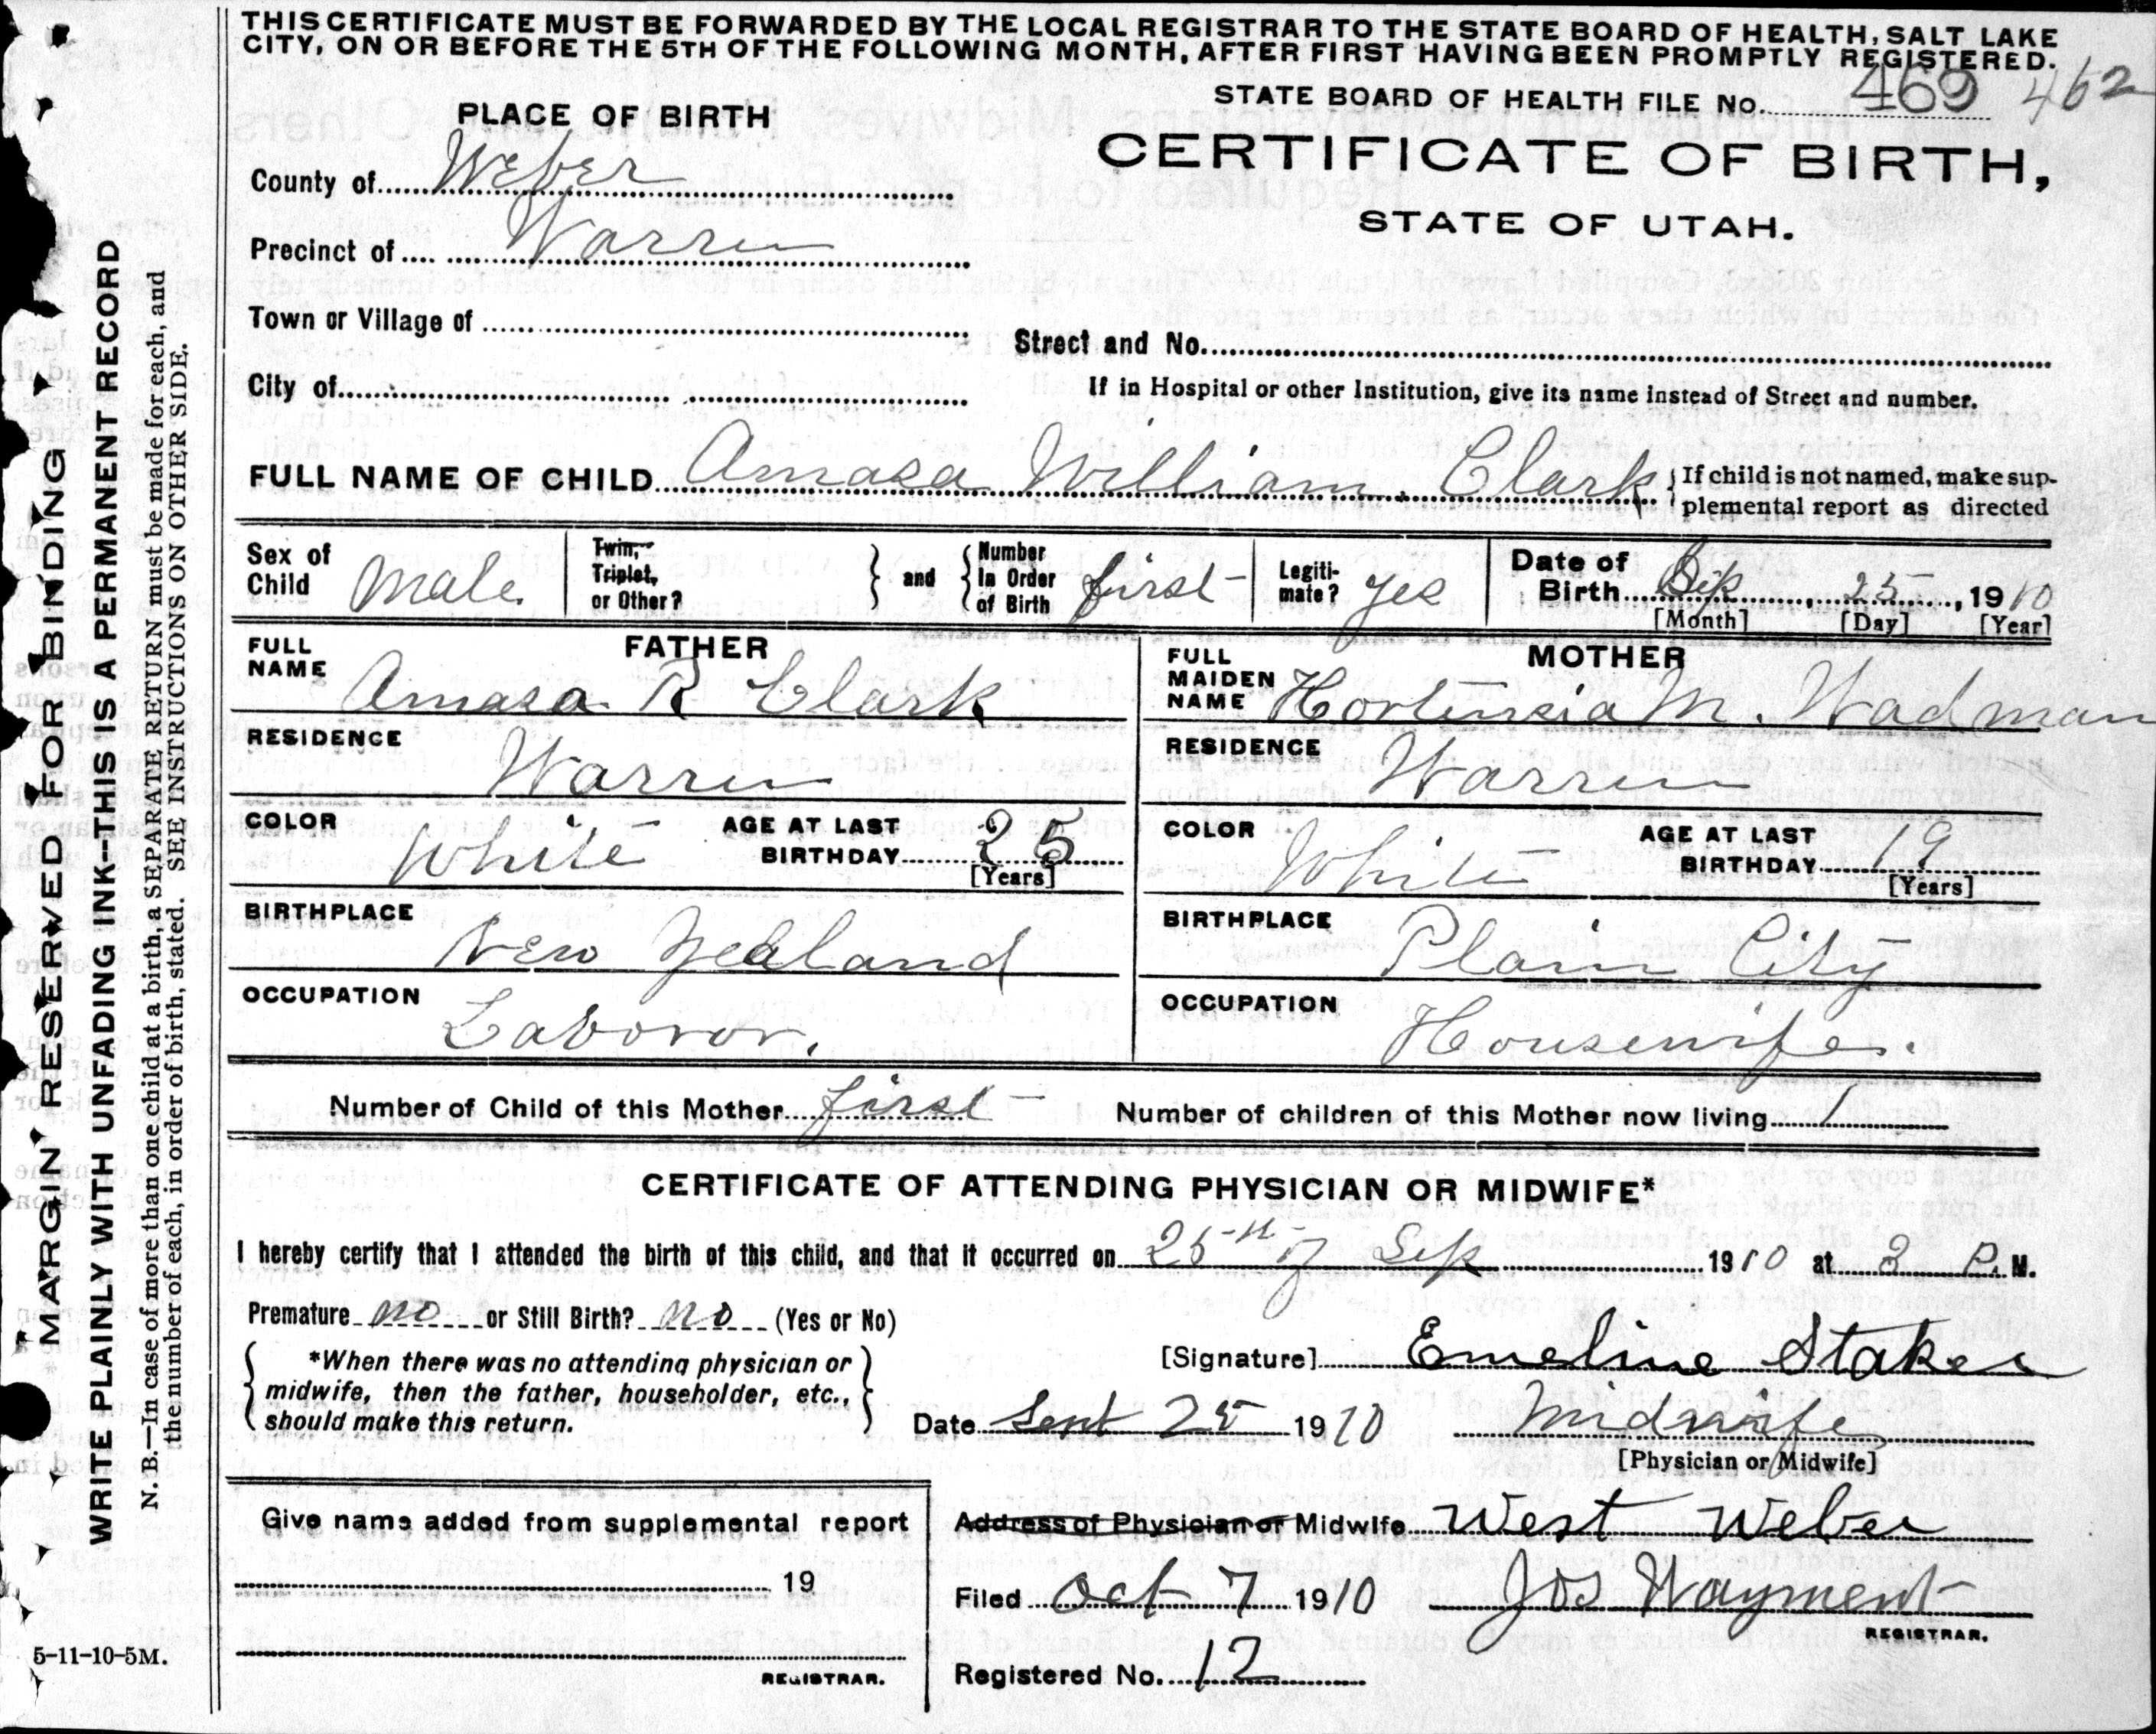 THIS CERTIFICATE MUST BE FORWARDED BY THE LOCAL REGISTRAR TO THE STATE BOARD OF HEALTH, SALT LAKE
CITY, ON OR BEFORE THE 5TH OF THE FOLLOWING MONTH, AFTER FIRST HAVING BEEN PROMPTLY REGISTERED.
STATE BOARD OF HEALTH FILE No. 469 462
PLACE OF BIRTH
CERTIFICATE OF BIRTH,
STATE OF UTAH.
County of Weber
Precinct of Warren
Town or Village of
Street and No.
City of
If in Hospital or other Institution, give its name instead of Street and number.
FULL NAME OF CHILD Amasa William Clark
If child is not named, make sup-
plemental report as directed
Sex of
Child Male
Twin,
Triplet,
or Other?
and
Number
in Order
of Birth first
Legiti-
mate? yes
Date of
Birth Sep 25, 1910
[Month] [Day] [Year]
FATHER
FULL
NAME Amasa R Clark
RESIDENCE Warren
COLOR White
AGE AT LAST
BIRTHDAY 25
[Years]
BIRTHPLACE New Zealand
OCCUPATION Laboror.
MOTHER
FULL
MAIDEN
NAME Hortensia M. Wadman
RESIDENCE Warren
COLOR White
AGE AT LAST
BIRTHDAY 19
[Years]
BIRTHPLACE Plain City
OCCUPATION Housewife.
Number of Child of this Mother first
Number of children of this Mother now living 1
CERTIFICATE OF ATTENDING PHYSICIAN OR MIDWIFE*
I hereby certify that I attended the birth of this child, and that it occurred on 25th of Sep 1910 at 3 P. M.
Premature no or Still Birth? no (Yes or No)
*When there was no attending physician or
midwife, then the father, householder, etc.,
should make this return.
[Signature] Emeline Staker
Date Sept 25 1910 Midwife
[Physician or Midwife]
Give name added from supplemental report
19
REGISTRAR.
Address of Physician or Midwife West Weber
Filed Oct 7 1910 Jos Wayment
REGISTRAR.
Registered No. 12
5-11-10-5M.
MARGIN RESERVED FOR BINDING
WRITE PLAINLY WITH UNFADING INK--THIS IS A PERMANENT RECORD
N. B.—In case of more than one child at a birth, a SEPARATE RETURN must be made for each, and
the number of each, in order of birth, stated. SEE INSTRUCTIONS ON OTHER SIDE.